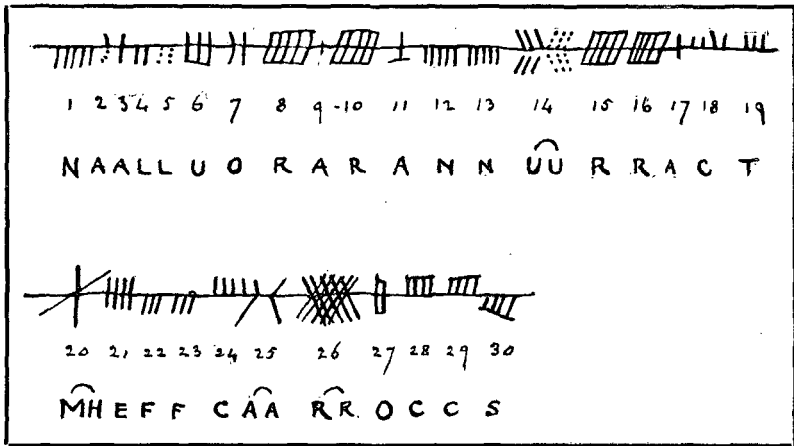 1 2 3 4 5 6 7 8 9 10 11 12 13 14 15 16 17 18 19
N A A L L U O R A R A N N U͡U R R A C T
20 21 22 23 24 25 26 27 28 29 30
M͡H E F F C A͡A R͡R O C C S